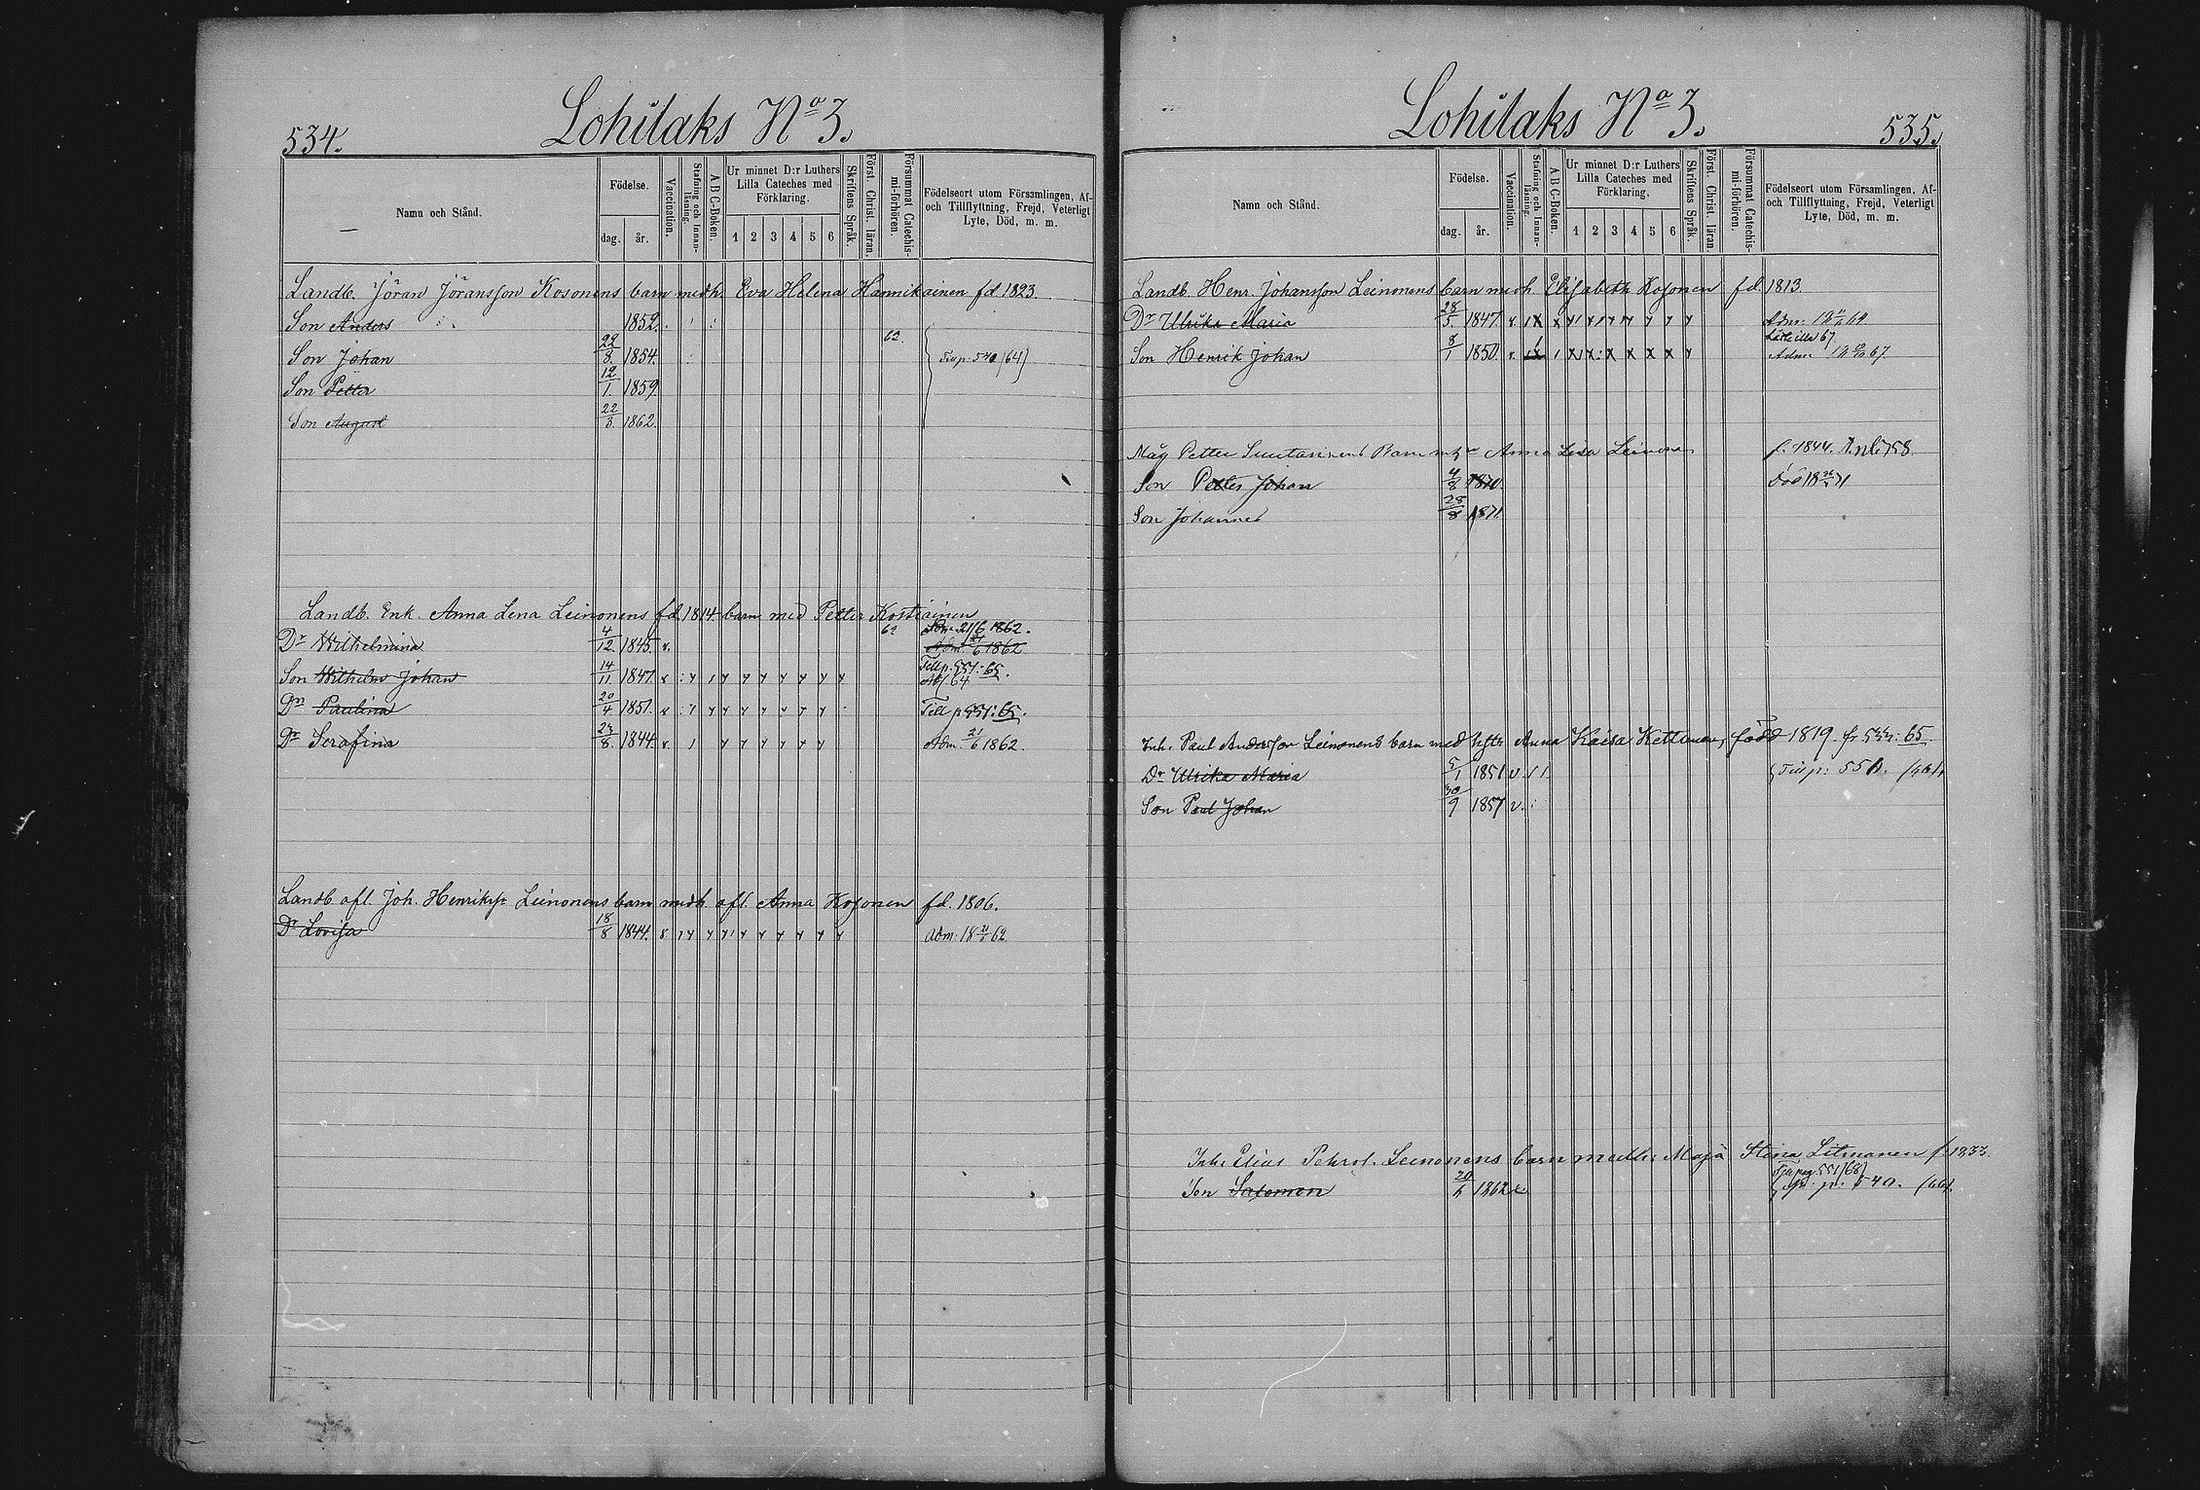 534.
Lohilaks No 3.
Namn och Stånd.
Födelse.
dag.
år.
Vaccination.
Stafning och Innan-
läsning.
A B C-Boken.
Ur minnet D:r Luthers
Lilla Cateches med
Förklaring.
1 2 3 4 5 6
Skriftens Språk.
Först. Christ. läran.
Försummat Catechis-
mi-förhören.
Födelseort utom Församlingen, Af-
och Tillflyttning, Frejd, Veterligt
Lyte, Död, m. m.
Landb. Jöran Jöransson Kosonens barn medh. Eva Helena Hannikainen fd 1823.
Son Anders 1852.
Son Johan 29/8. 1854. Tillp. 540 (64)
Son Petter 12/1. 1859.
Son August 22/3. 1862.
Landb. Enk. Anna Lena Leinonens fd. 1814 barn med Petter Kostiainen
Dr Wilhelmina 4/12 1845. 62 Adm. 21/6 1862.
Adm. 21/6 1862
Son Wilhelm Johan 14/11 1847. Till p. 551: 65.
Adf. 64
Dr Paulina 20/4 1851. Till p 551: 65.
Dr Serafina 23/8. 1844. Adm. 21/6 1862.
Landb. afl. Joh. Henrikss. Leinonens barn medh. afl. Anna Kosonen fd. 1806.
Dr Lovisa 18/8 1844. Adm. 18 62.
535.
Lohilaks No 3.
Namn och Stånd.
Födelse.
dag.
år.
Vaccination.
Stafning och Innan-
läsning.
A B C-Boken.
Ur minnet D:r Luthers
Lilla Cateches med
Förklaring.
1 2 3 4 5 6
Skriftens Språk.
Först. Christ. läran.
Försummat Catechis-
mi-förhören.
Födelseort utom Församlingen, Af-
och Tillflyttning, Frejd, Veterligt
Lyte, Död, m. m.
Landb. Henr. Johansson Leinonens barn medh. Elisabeth Kosonen fd 1813
Dr Ulrika Maria 28/5. 1847.
Son Henrik Johan 8/1 1850.
Måg Petter barn Anna Lisa Leinonen f. 1844.
Son Petter Johan 4/8 1870. Död 18 71
Son Johannes 28/8 1871.
Inh. Paul Andersson Leinonens barn med hstr Anna Kaisa Kettunen, född 1819. fr. : 65.
Dr Ulrika Maria 5/1 1851 Tillp: 550.
Son Paul Johan 30/9 1857
Inh. Elias Leinonens barn medh. Maja Stina Litmanen f. 1833.
Från pag 551/68)
Son Salomon 1862 p. 540. (66).